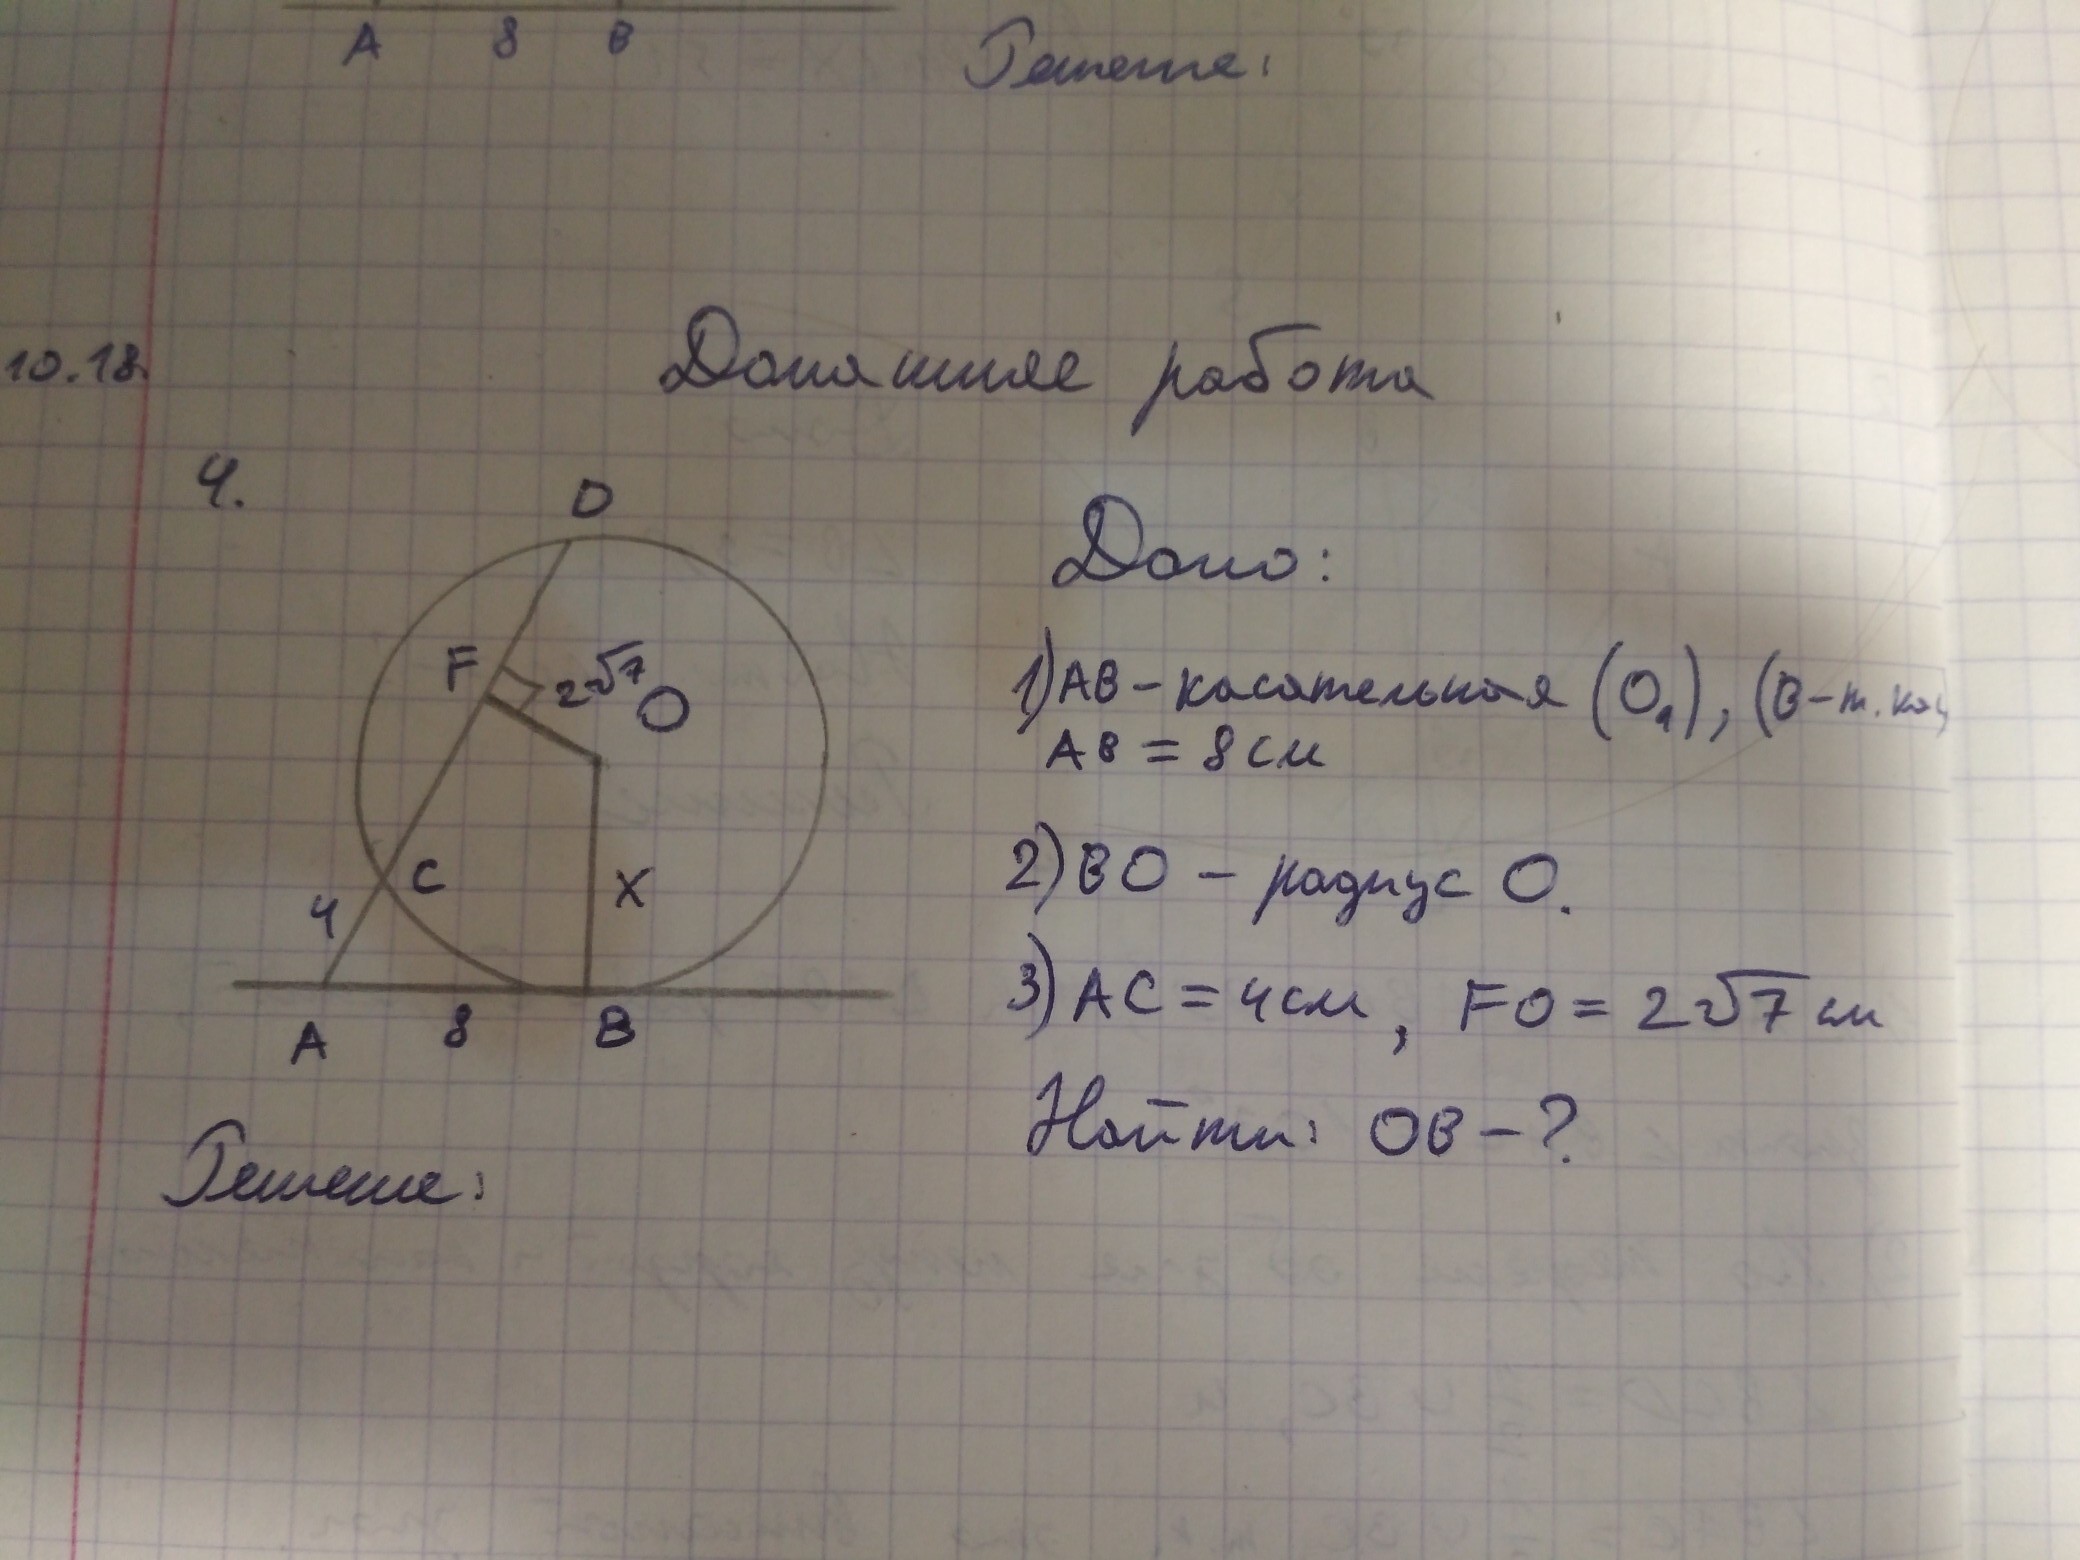 A 8 B
Решение:
10.18.
Домашнее работа
4.
D
F 2√7 O
C
4 X
A 8 B
Дано:
1) AB – касательная (O₁), (B – т. кас
AB = 8 см
2) BO – радиус O.
3) AC = 4 см, FO = 2√7 см
Найти: OB – ?
Решение: